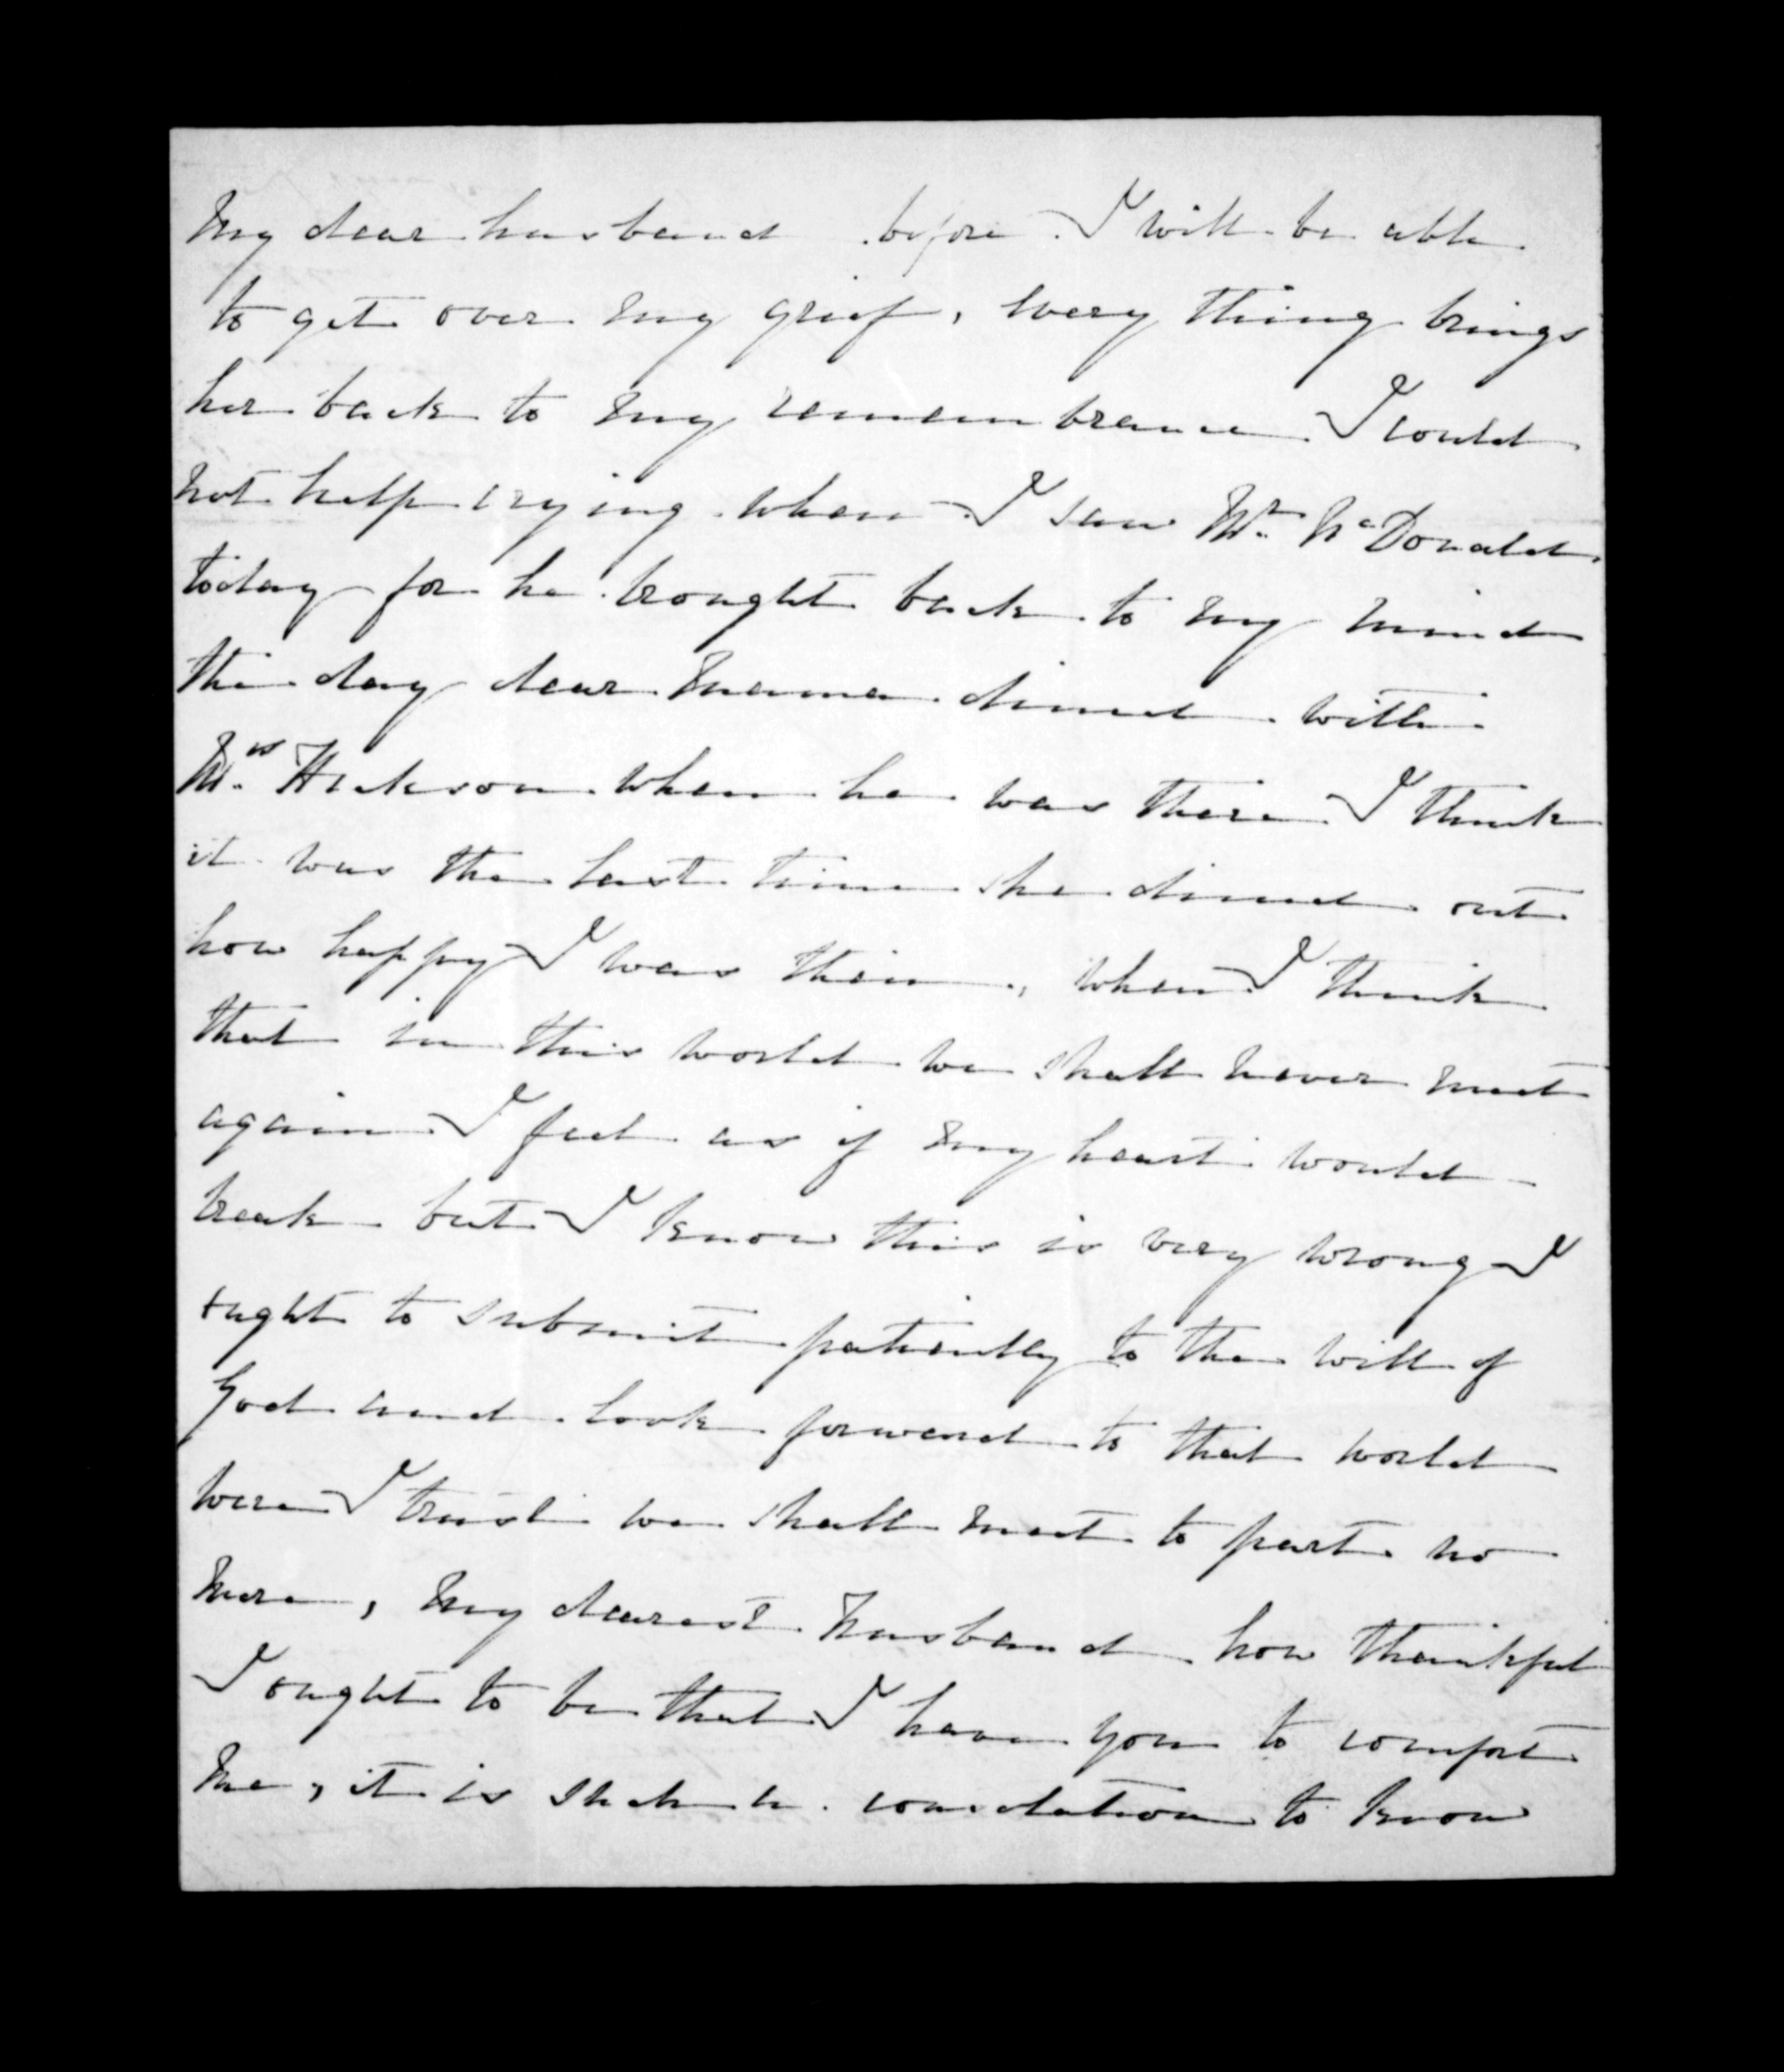 My dear husband before I will be able
to get over my grief, every thing brings
her back to my remembrance I could
not help crying when I saw Mr. McDonald
today for he brought back to my mind
the day dear Mama dined with
Mrs. Hickson when he was there I think
it was the last time she dined out
how happy I was then, when I think
that in this world we shall never meet
again I feel as if my heart would
break but I know this is very wrong I
ought to submit patiently to the will of
God and look forward to that world
were I trust we shall meet to part no
more, my dearest husband how thankful
I ought to be that I have you to comfort
me, it is such a consolation to know